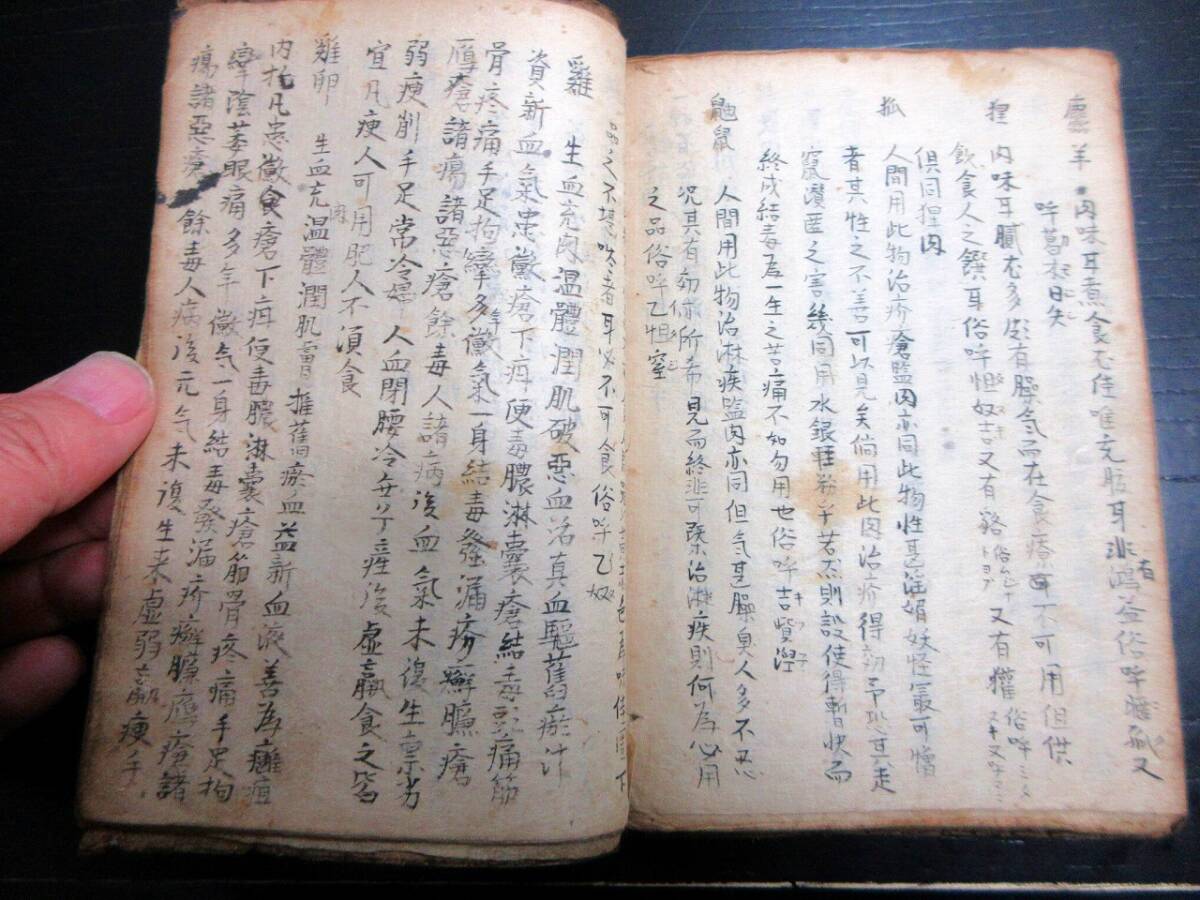 羊 肉味耳煮食不佳唯充脂耳非鴻益俗呼
呼葛根日矢
狸 肉味耳膩太多 有臊气而在食療 不可用但供
飲食人之饌耳俗呼怛奴吉又有貉 又有獾俗呼
俱同狸肉
狐 人間用此物治疥瘡盬肉亦同此物性甚淫媚妖怪最可憎
者其性之不善可以見矣倘用此肉治疥得効予恐其走
竄瀆匿之害幾同用水銀軽粉乎若不則設使得暫快而
終成結毒為一生之苦痛不如勿用也俗呼吉賢涅
鼬鼠 人間用此物治淋疾盬肉亦同但气甚臊臭人多不忍
况其有効 所希見而終非可藥治淋疾則何為心用
之品俗呼乙怛窒
品之不 者耳必不可食俗呼乙奴
雞 生血充肉温體潤肌破惡血活真血驅舊瘀汁
資新血氣患黴瘡下疳便毒膿淋囊瘡結毒 痛筋
骨疼痛手足拘攣多年黴氣一身結毒發漏疥癬臁瘡
鴈瘡諸瘍諸惡瘡餘毒人諸病後血氣未復生禀劣
弱痩削手足常冷婦人血閉腰冷無子産後虚羸食之皆
宜凡痩人可用肥人不須食
雞卵 生血充肉温體潤肌膚推舊瘀血益新血液善為癰疽
内托凡患黴瘡下疳便毒膿淋囊瘡筋骨疼痛手足拘
攣陰萎眼痛多年黴气一身結毒發漏疥癬臁鴈瘡諸
瘍諸惡瘡餘毒人病後元气未復生来虚弱羸痩手